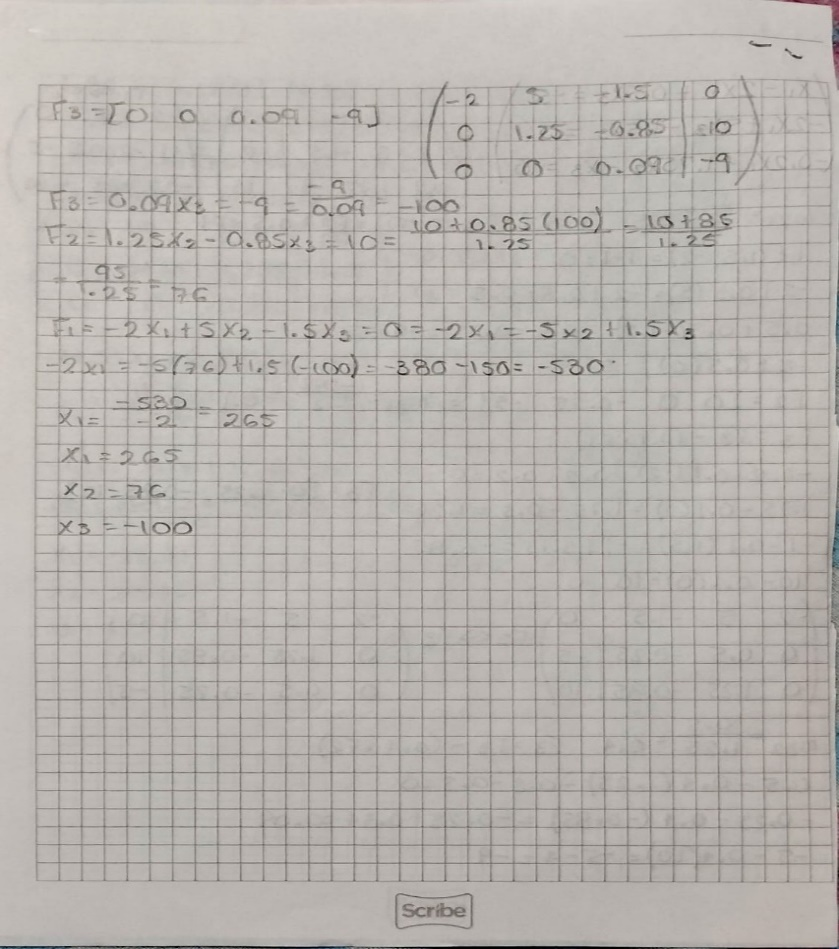 F3=[0 0 0.09 -9]
(-2 5 -1.5 | 0
0 1.25 -0.85 | 10
0 0 0.09 | -9)
F3=0.09x3=-9=-9/0.09=-100
F2=1.25x2-0.85x3=10=10+0.85(100)/1.25=10+85/1.25
=95/1.25=76
F1=-2x1+5x2-1.5x3=0=-2x1=-5x2+1.5x3
-2x1=-5(76)+1.5(-100)=-380-150=-530
x1=-530/-2=265
x1=265
x2=76
x3=-100
Scribe